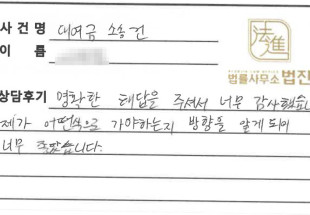 사 건 명 대여금 소송 건
이 름
法進
법률사무소 법진
상담후기 명확한 대답을 주셔서 너무 감사했습니
제가 어떤식으로 가야하는지 방향을 알게 되어
너무 좋았습니다.